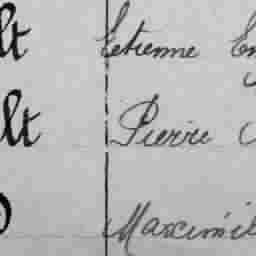 lt Etienne Em
lt Pierre
Maximil